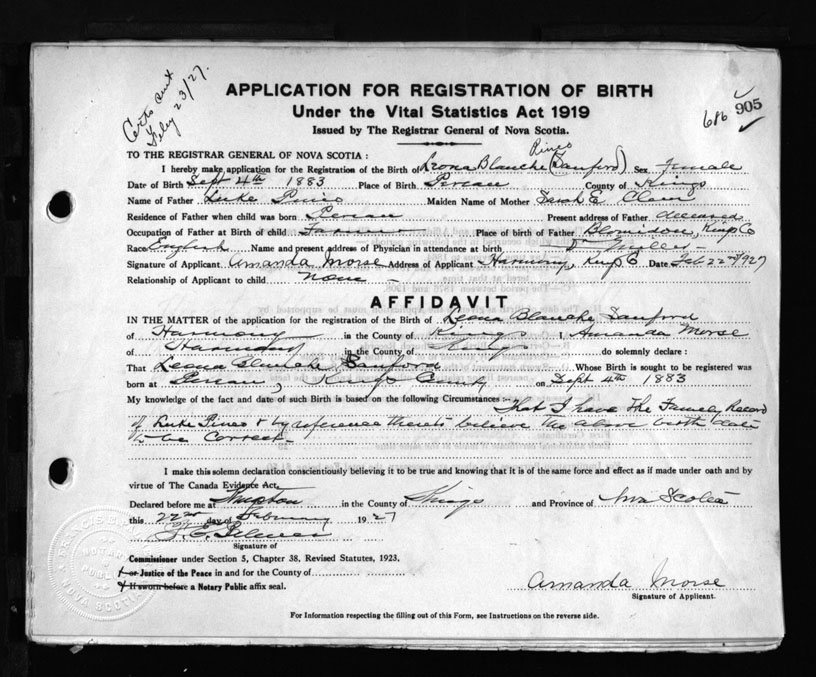 Certs sent
Feby 23/27.
APPLICATION FOR REGISTRATION OF BIRTH
Under the Vital Statistics Act 1919
Issued by The Registrar General of Nova Scotia.
686 905
Pineo
TO THE REGISTRAR GENERAL OF NOVA SCOTIA :
I hereby make application for the Registration of the Birth of Leona Blanche (Sanford) Sex Female
Date of Birth Sept 4th 1883 Place of Birth Pereau County of Kings
Name of Father Luke Pineo Maiden Name of Mother Sarah E. Clem
Residence of Father when child was born Pereau Present address of Father deceased
Occupation of Father at Birth of child Farmer Place of birth of Father Blomidon, Kings Co
Race English Name and present address of Physician in attendance at birth Dr Miller
Signature of Applicant Amanda Morse Address of Applicant Harmony, Kings Co. Date Feb 22nd 1927
Relationship of Applicant to child none
AFFIDAVIT
IN THE MATTER of the application for the registration of the Birth of Leona Blanche Sanford
of Harmony in the County of Kings I, Amanda Morse
of Harmony in the County of Kings do solemnly declare :
That Leona Blanche Sanford Whose Birth is sought to be registered was
born at Pereau, Kings County on Sept 4th 1883
My knowledge of the fact and date of such Birth is based on the following Circumstances:- That I have The Family Record
of Luke Pineo & by reference thereto believe the above birth date
to be Correct-
I make this solemn declaration conscientiously believing it to be true and knowing that it is of the same force and effect as if made under oath and by
virtue of The Canada Evidence Act,
Declared before me at in the County of Kings and Province of Nova Scotia
this 22nd day of February 1927
Signature of
Commissioner under Section 5, Chapter 38, Revised Statutes, 1923,
or Justice of the Peace in and for the County of
If sworn before a Notary Public affix seal.
Amanda Morse
Signature of Applicant.
For Information respecting the filling out of this Form, see Instructions on the reverse side.